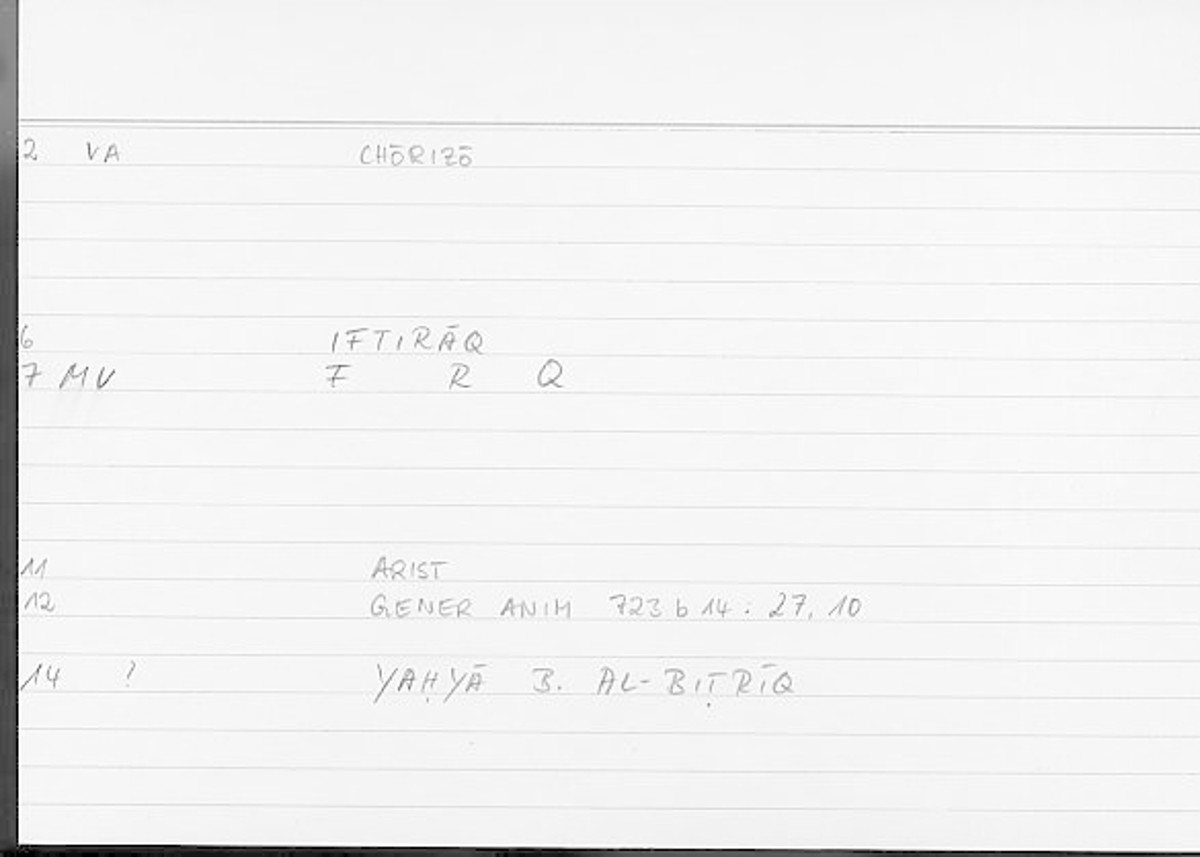 2 VA CHŌRIZŌ
6 IFTIRĀQ
7 MV F R Q
11 ARIST
12 GENER ANIM 723 b 14 : 27, 10
14 ? YAḤYĀ B. AL-BIṬRĪQ